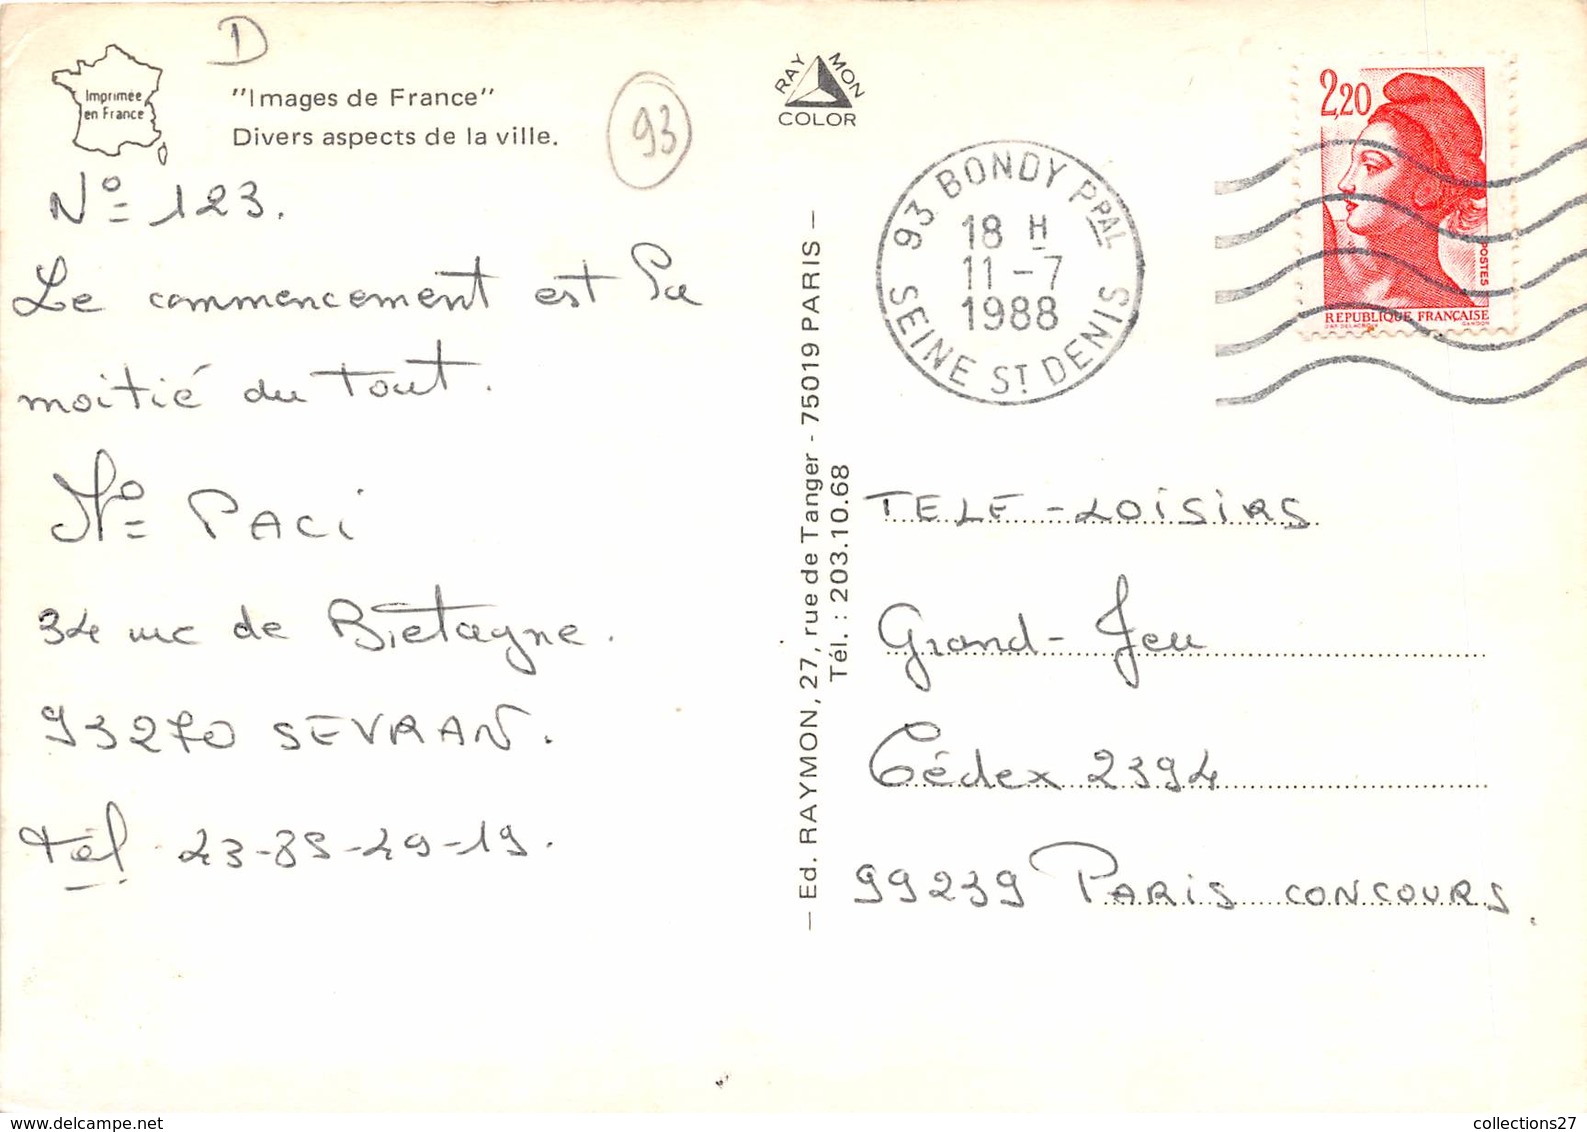 D
Imprimée
en France
"Images de France"
Divers aspects de la ville.
93
RAYMON
COLOR
N° 123.
Le commencement est la
moitié du Tout.
PACI
34 rue de Bretagne.
93270 SEVRAN.
Tél. 43-85-29-19.
— Ed. RAYMON, 27, rue de Tanger - 75019 PARIS —
Tél. : 203.10.68
93 BONDY PPAL
18 H
11-7
1988
SEINE ST DENIS
2,20
POSTES
REPUBLIQUE FRANÇAISE
D'AP. DELACROIX
GANDON
TELE-LOISIRS
Grand-Jeu
Cédex 2394
99239 PARIS CONCOURS.
collections27